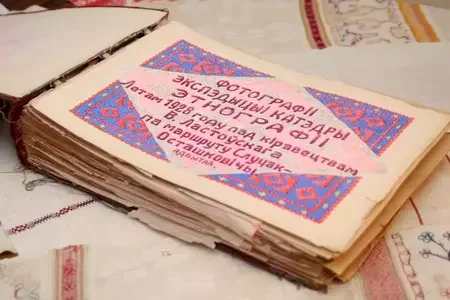 ФОТОГРАФІІ
ЭКСПЭДЫЦЫІ КАТЭДРЫ
ЭТНОГРАФІІ
Летам 1928 году пад кіравецтвам
В. Ластоўскага
па маршруту Случак-
Осташковічы